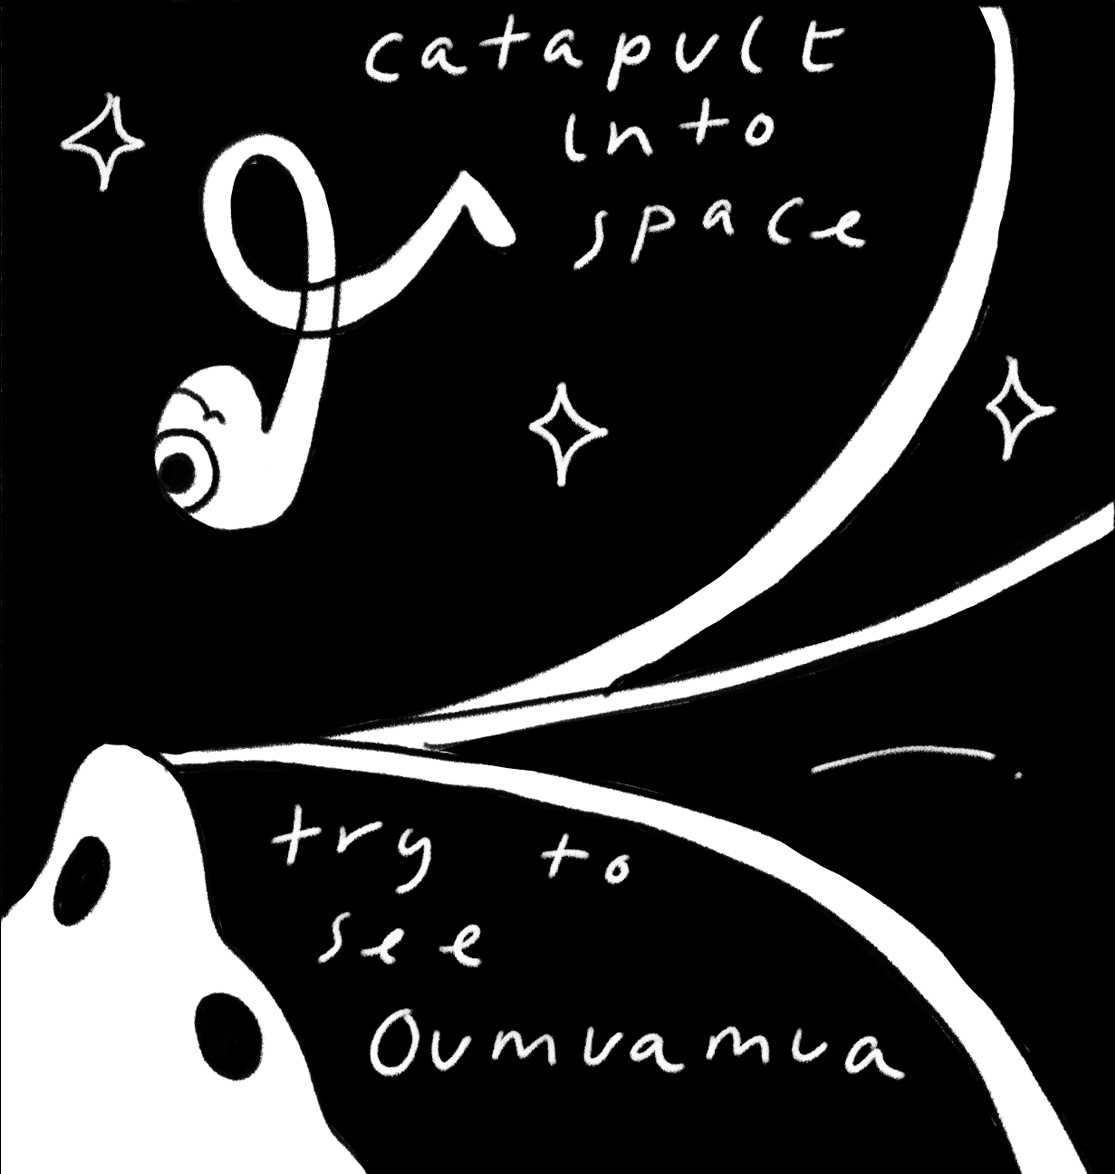 catapult
into
space
try to
see
Oumuamua